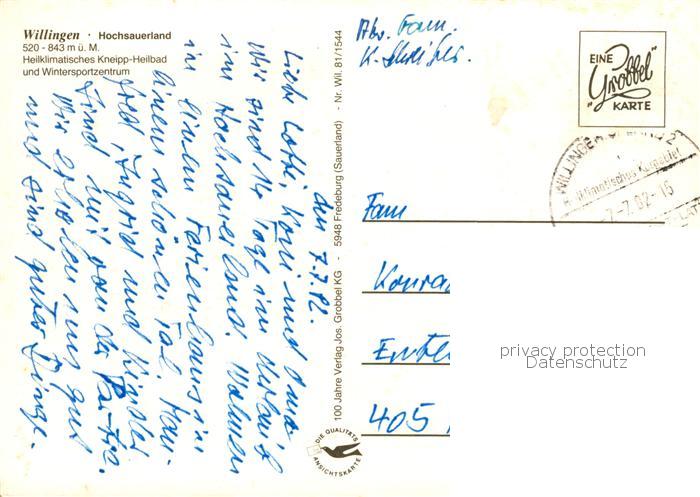 Willingen · Hochsauerland
520 - 843 m ü. M.
Heilklimatisches Kneipp-Heilbad
und Wintersportzentrum
Abs. Fam.
K.
EINE
"Grobbel"
KARTE
WILLINGEN 2
Heilklimatisches Kurgebiet
-7.-7.82-15
den 7.7.82.
Liebe Lotte, Konni und Oma
Wir sind 14 Tage im Urlaub
im Hochsauerland. Wohnen
in einem Ferienhaus in
einem schönen Tal. Man-
fred, Ingrid und Kinder
sind mit von der Partie.
Wir erholen uns gut
und sind guter Dinge.
100 Jahre Verlag Jos. Grobbel KG - 5948 Fredeburg (Sauerland) - Nr. Wil. 81/1544
DIE QUALITÄTS
ANSICHTSKARTE
Fam
Konra
405
privacy protection
Datenschutz